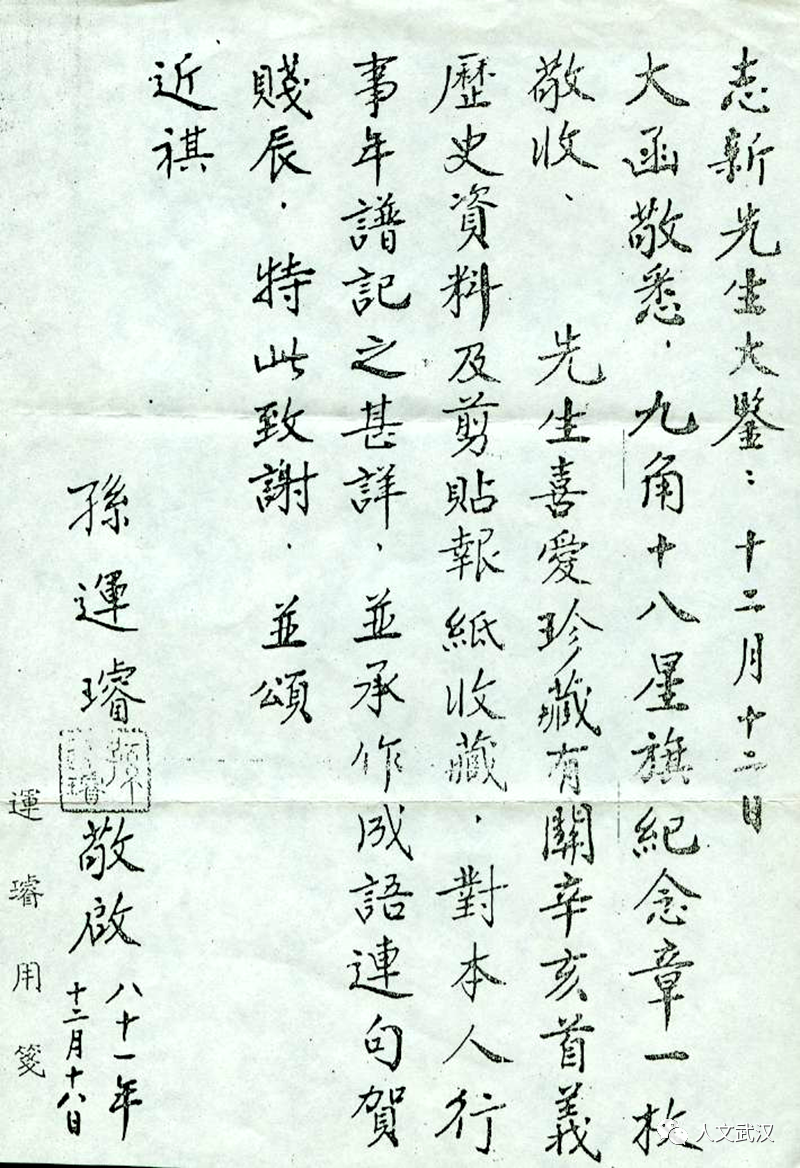 志新先生大鑒：十二月十二日
大函敬悉．九角十八星旗紀念章一枚
敬收．　先生喜愛珍藏有關辛亥首義
歷史資料及剪貼報紙收藏．對本人行
事年譜記之甚詳．並承作成語連句賀
賤辰．特此致謝．並頌
近祺
孫運璿敬啟
八十一年
十二月十八日
運璿用箋
人文武汉